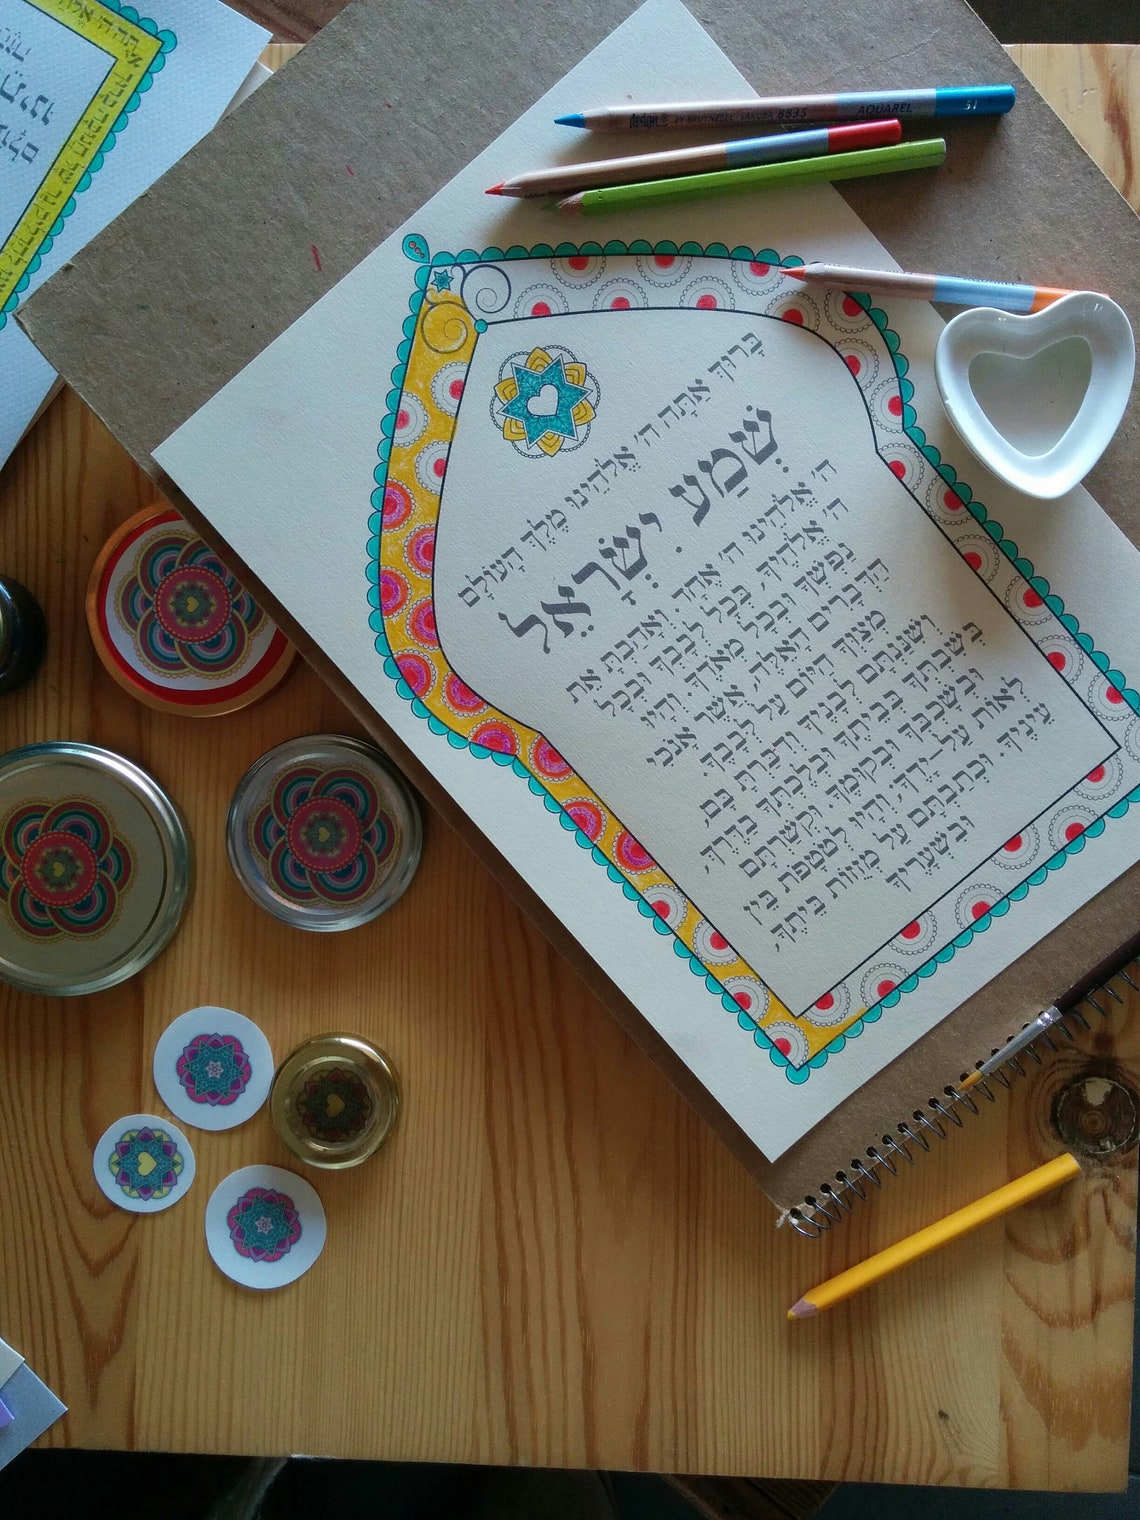 בָּרוּךְ אַתָּה ה' אֱלֹהֵינוּ מֶלֶךְ הָעוֹלָם
שְׁמַע יִשְׂרָאֵל
ה' אֱלֹהֵינוּ ה' אֶחָד. וְאָהַבְתָּ אֵת
ה' אֱלֹהֶיךָ, בְּכָל לְבָבְךָ וּבְכָל
נַפְשְׁךָ וּבְכָל מְאֹדֶךָ. וְהָיוּ
הַדְּבָרִים הָאֵלֶּה, אֲשֶׁר אָנֹכִי
מְצַוְּךָ הַיּוֹם עַל לְבָבֶךָ.
וְשִׁנַּנְתָּם לְבָנֶיךָ וְדִבַּרְתָּ בָּם,
בְּשִׁבְתְּךָ בְּבֵיתֶךָ וּבְלֶכְתְּךָ בַדֶּרֶךְ,
וּבְשָׁכְבְּךָ וּבְקוּמֶךָ. וּקְשַׁרְתָּם
לְאוֹת עַל-יָדֶךָ, וְהָיוּ לְטֹטָפֹת בֵּין
עֵינֶיךָ. וּכְתַבְתָּם עַל מְזֻזוֹת בֵּיתֶךָ,
וּבִשְׁעָרֶיךָ
design BY BRUYNZEEL-SAKURA 8835 AQUAREL 51
AQUAREL